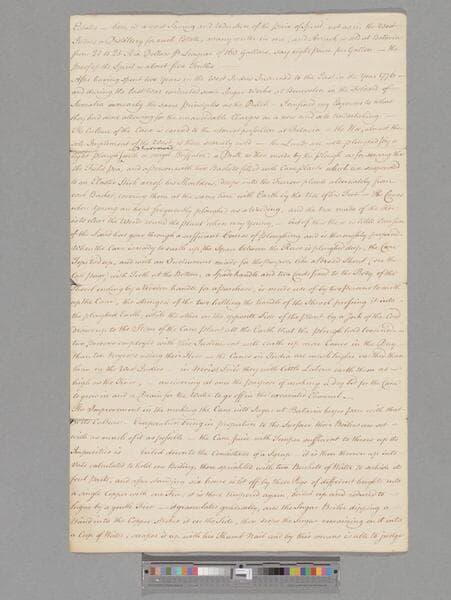 Estates — here is a vast Saving and reduction of the price of Spirit, not as in the West
Indies a Distillery for each Estate, many unite in one, and Arrack is sold at Batavia
from 20 to 25 Rix Dollars Leaguer of 160 Gallons, say eight pence per Gallon — the
proof of the Spirit is about five Tenths —
After having spent two Years in the West Indies I returned to the East in the Year 1776
and during the last War conducted some Sugar Works at Bencoolen on the Island of
Sumatra nearly the same Principles as the Dutch — I confined my Expences to what
they had done allowing for the unavoidable Charges in a new and sole Establishing —
The Culture of the Cane is carried to the utmost perfection at Batavia — the Hoe, almost the
sole Implement of the West is there scarcely used — the Lands are well ploughed by a
light plough with a single Buffaloe; a Drill is then made by the plough
the Field, and a person with two Baskets filled with Cane plants which are suspended
to an Elastic Stick across his Shoulders, drops into the Furrow plants alternately from
each Basket, covering them at the same time with Earth by the Use of his Foot — the Canes
when young are kept frequently ploughed as a Weeding, and the Hoe made of
to clear the Weeds round the plant when very young — but of this there is little Occasion
if the Land has gone through a sufficient Course of Ploughing and is thoroughly prepared
When the Cane is ready to earth up, the Space between the Rows is ploughed deep, the Cane
Tops tied up, and with an Instrument made for the purpose like a broad Shovel,
with Teeth at the Bottom, a Spade handle and two Cords fixed to the Body of the
Shovel ending by a Wooden handle for a purchase, is made use of by two Persons to earth
up the Cane, the strongest of the two holding the handle of the Shovel pressing it into
the ploughed Earth, while the other on the opposite Side of the Plant by a Jerk of the Cord
draws up to the Stem of the Cane plant all the Earth that the plough had loosened —
two persons employed with this Instrument will earth up more Canes in the Day
than ten Negroes using their Hoes — the Canes in India are much higher earthed than
than in the West Indies — in moist Soils they with little Labour earth them as
high as the Knee, — answering at once the purpose of making a dry bed for the Cane
to grow in and a Drain for the Water to go off in the excavated Channel —
The Improvement in the making the Cane into Sugar at Batavia keeps pace with that
of its Culture — Evaporation being in proportion to the Surface, their Boilers are set
with as much of it as possible — the Cane Juice with Temper sufficient to throw up its
Impurities is boiled down to the Consistence of a Syrup — it is then thrown up into
Vats calculated to hold one boiling, then sprinkled with two Buckets of Water to which its
foul parts, and after Standing six hours is let off by three Pegs of different heights into
a single Copper with one Fire, it is there tempered again, boiled up and reduced to
Sugar by a gentle Fire — it granulates gradually, and the Sugar Boiler dipping a
Wand into the Copper strikes it on the Side, then drops the Sugar remaining on it into
a Cup of Water, scrapes it up with his Thumb Nail and by this means is able to judge